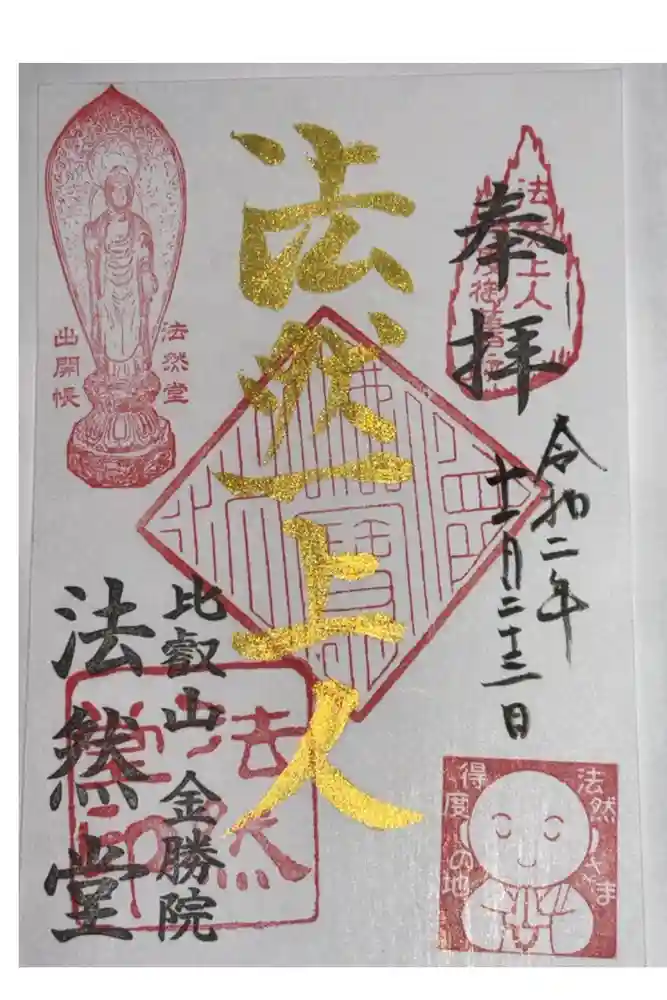 奉拝
法然上人
令和二年
十二月二十三日
法然上人
比叡山 金勝院
法然堂
法然堂
出開帳
法然さま
得度の地